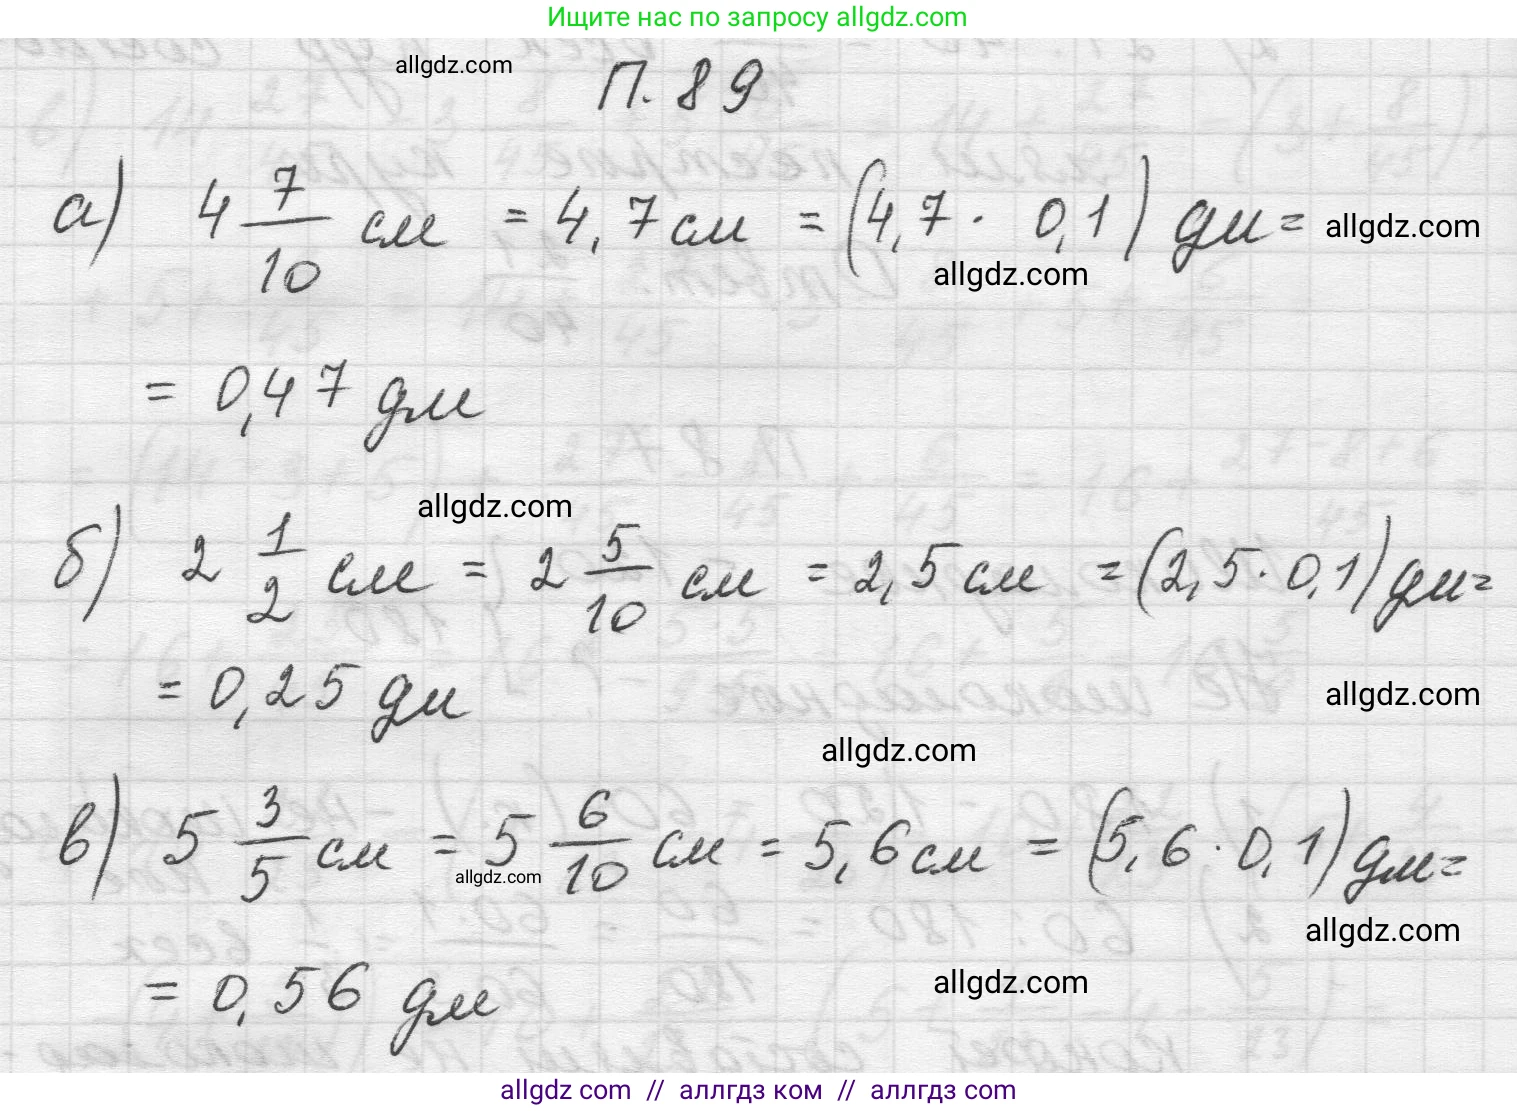 Ищите нас по запросу allgdz.com
allgdz.com
П. 89
а) 4 7/10 см = 4,7 см = (4,7 · 0,1) дм = allgdz.com
allgdz.com
= 0,47 дм
allgdz.com
б) 2 1/2 см = 2 5/10 см = 2,5 см = (2,5 · 0,1) дм =
= 0,25 дм
allgdz.com
allgdz.com
в) 5 3/5 см = 5 6/10 см = 5,6 см = (5,6 · 0,1) дм =
allgdz.com
allgdz.com
= 0,56 дм
allgdz.com
allgdz.com // аллгдз ком // аллгдз.com